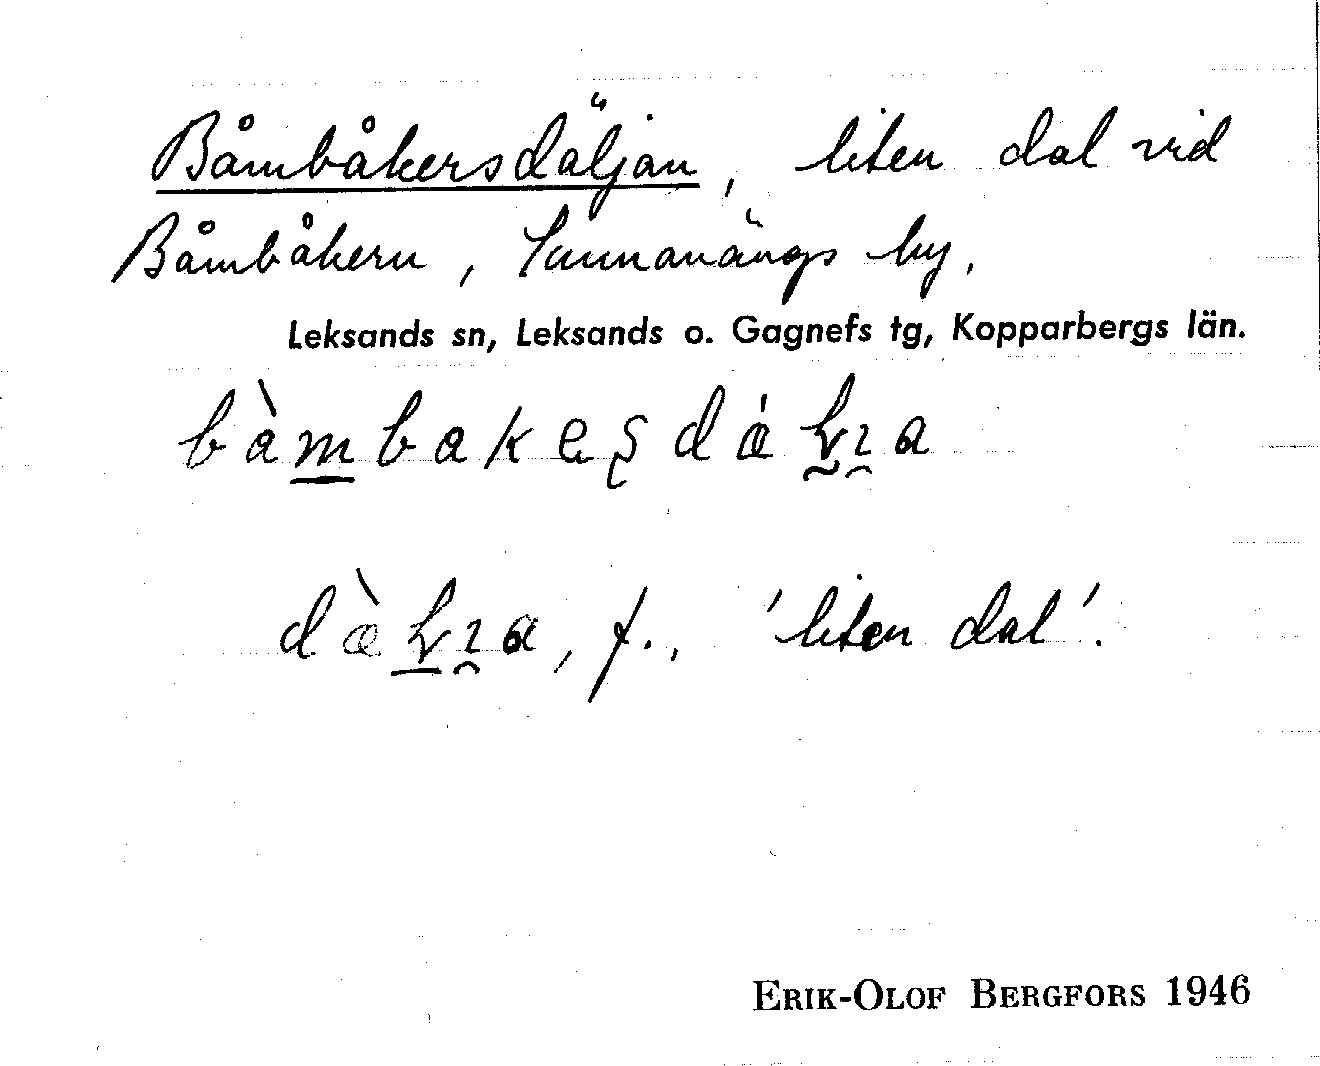 Båmbåkersdäljan, liten dal vid
Båmbåkern, Sunnanängs by.
Leksands sn, Leksands o. Gagnefs tg, Kopparbergs län.
'liten dal'.
ERIK-OLOF BERGFORS 1946